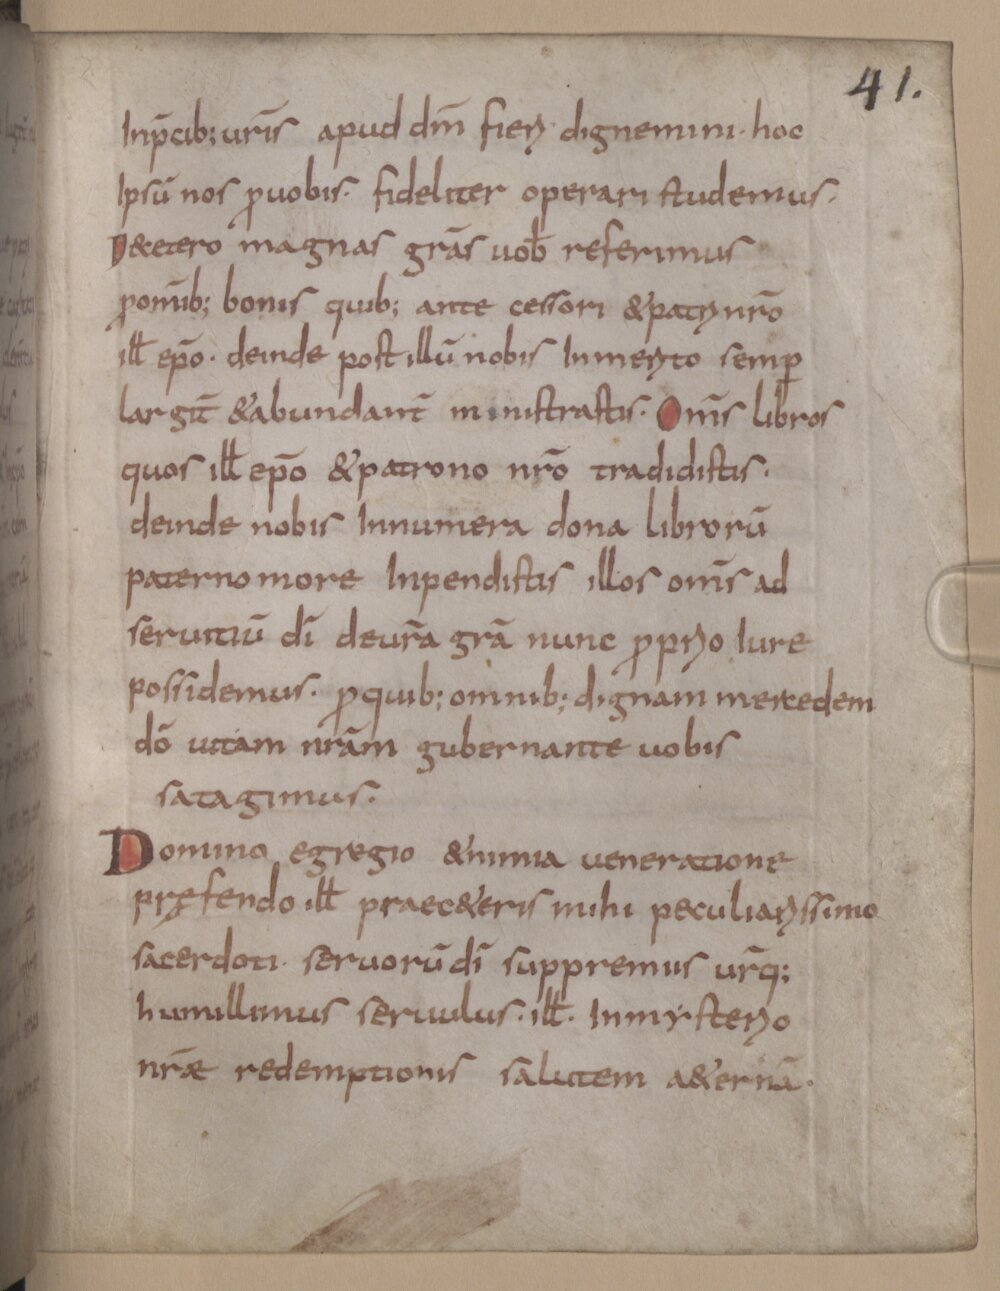 41.
Inp̄cib; ur̄is apud dm̄ fieri dignemini· hoc
Ipsū nos ꝓuobis· fideliter operari studemus·
D&etero magnas grās uob̄ referimus
ꝓom̄ib; bonis quib; ante cessori &patri nr̄o
ill̄ ep̄o· deinde post illū nobis Inmerito semꝑ
largit̄ &abundant̄ ministrastis· Om̄s libros
quos ill̄ ep̄o &patrono nr̄o tradidistis·
deinde nobis Innumera dona librorū
paterno more Inpendistis illos om̄s ad
seruitiū dī deur̄a grā nunc ꝓprio Iure
possidemus· ꝓquib; omnib; dignam mercedem
dō uitam nr̄am gubernante uobis
satagimus·
Domino egregio &nimia ueneratione
pręferendo ill̄ praec&eris mihi peculiarissimo
sacerdoti· seruorū dī suppremus ur̄q;
humillimus seruulus· ill̄· Inmysterio
nr̄ae redemptionis salutem a&ernā·